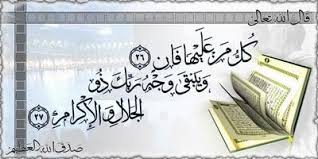 قال الله تعالى
كُلُّ مَنْ عَلَيْهَا فَانٍ ٢٦
وَيَبْقَى وَجْهُ رَبِّكَ ذُو
الْجَلَالِ وَالْإِكْرَامِ ٢٧
صدق الله العظيم